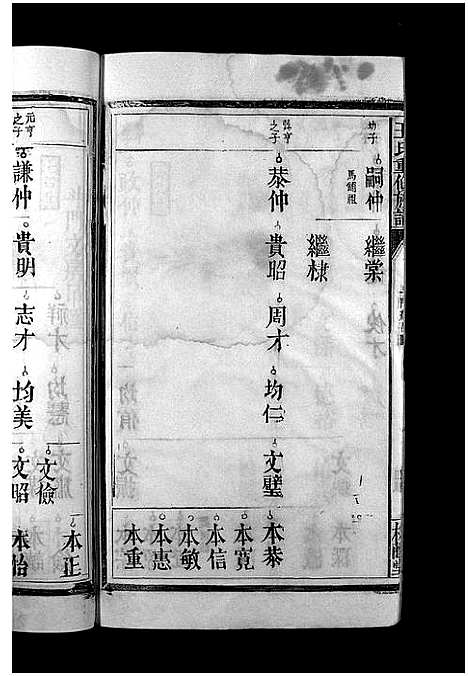 王氏重修族譜
幼子
嗣仲
馬鋪祖
繼棠
繼棣
之子
恭仲
貴昭
周才
均仁
文璧
本恭
本寬
本信
本敏
本惠
本重
元亨
之子
謙仲
貴明
志才
均美
文儉
文昭
本正
本怡